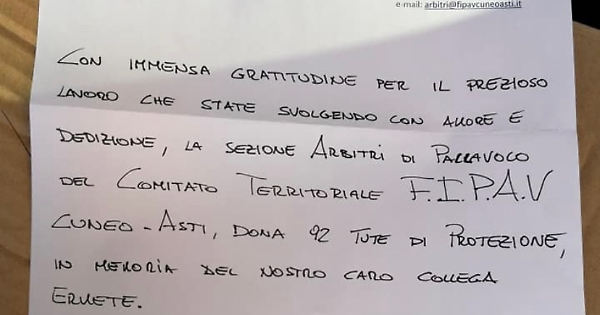 e-mail: arbitri@fipavcuneoasti.it
CON IMMENSA GRATITUDINE PER IL PREZIOSO
LAVORO CHE STATE SVOLGENDO CON AMORE E
DEDIZIONE, LA SEZIONE ARBITRI DI PALLAVOLO
DEL COMITATO TERRITORIALE F.I.P.A.V
CUNEO-ASTI, DONA 92 TUTE DI PROTEZIONE,
IN MEMORIA DEL NOSTRO CARO COLLEGA
ERMETE.